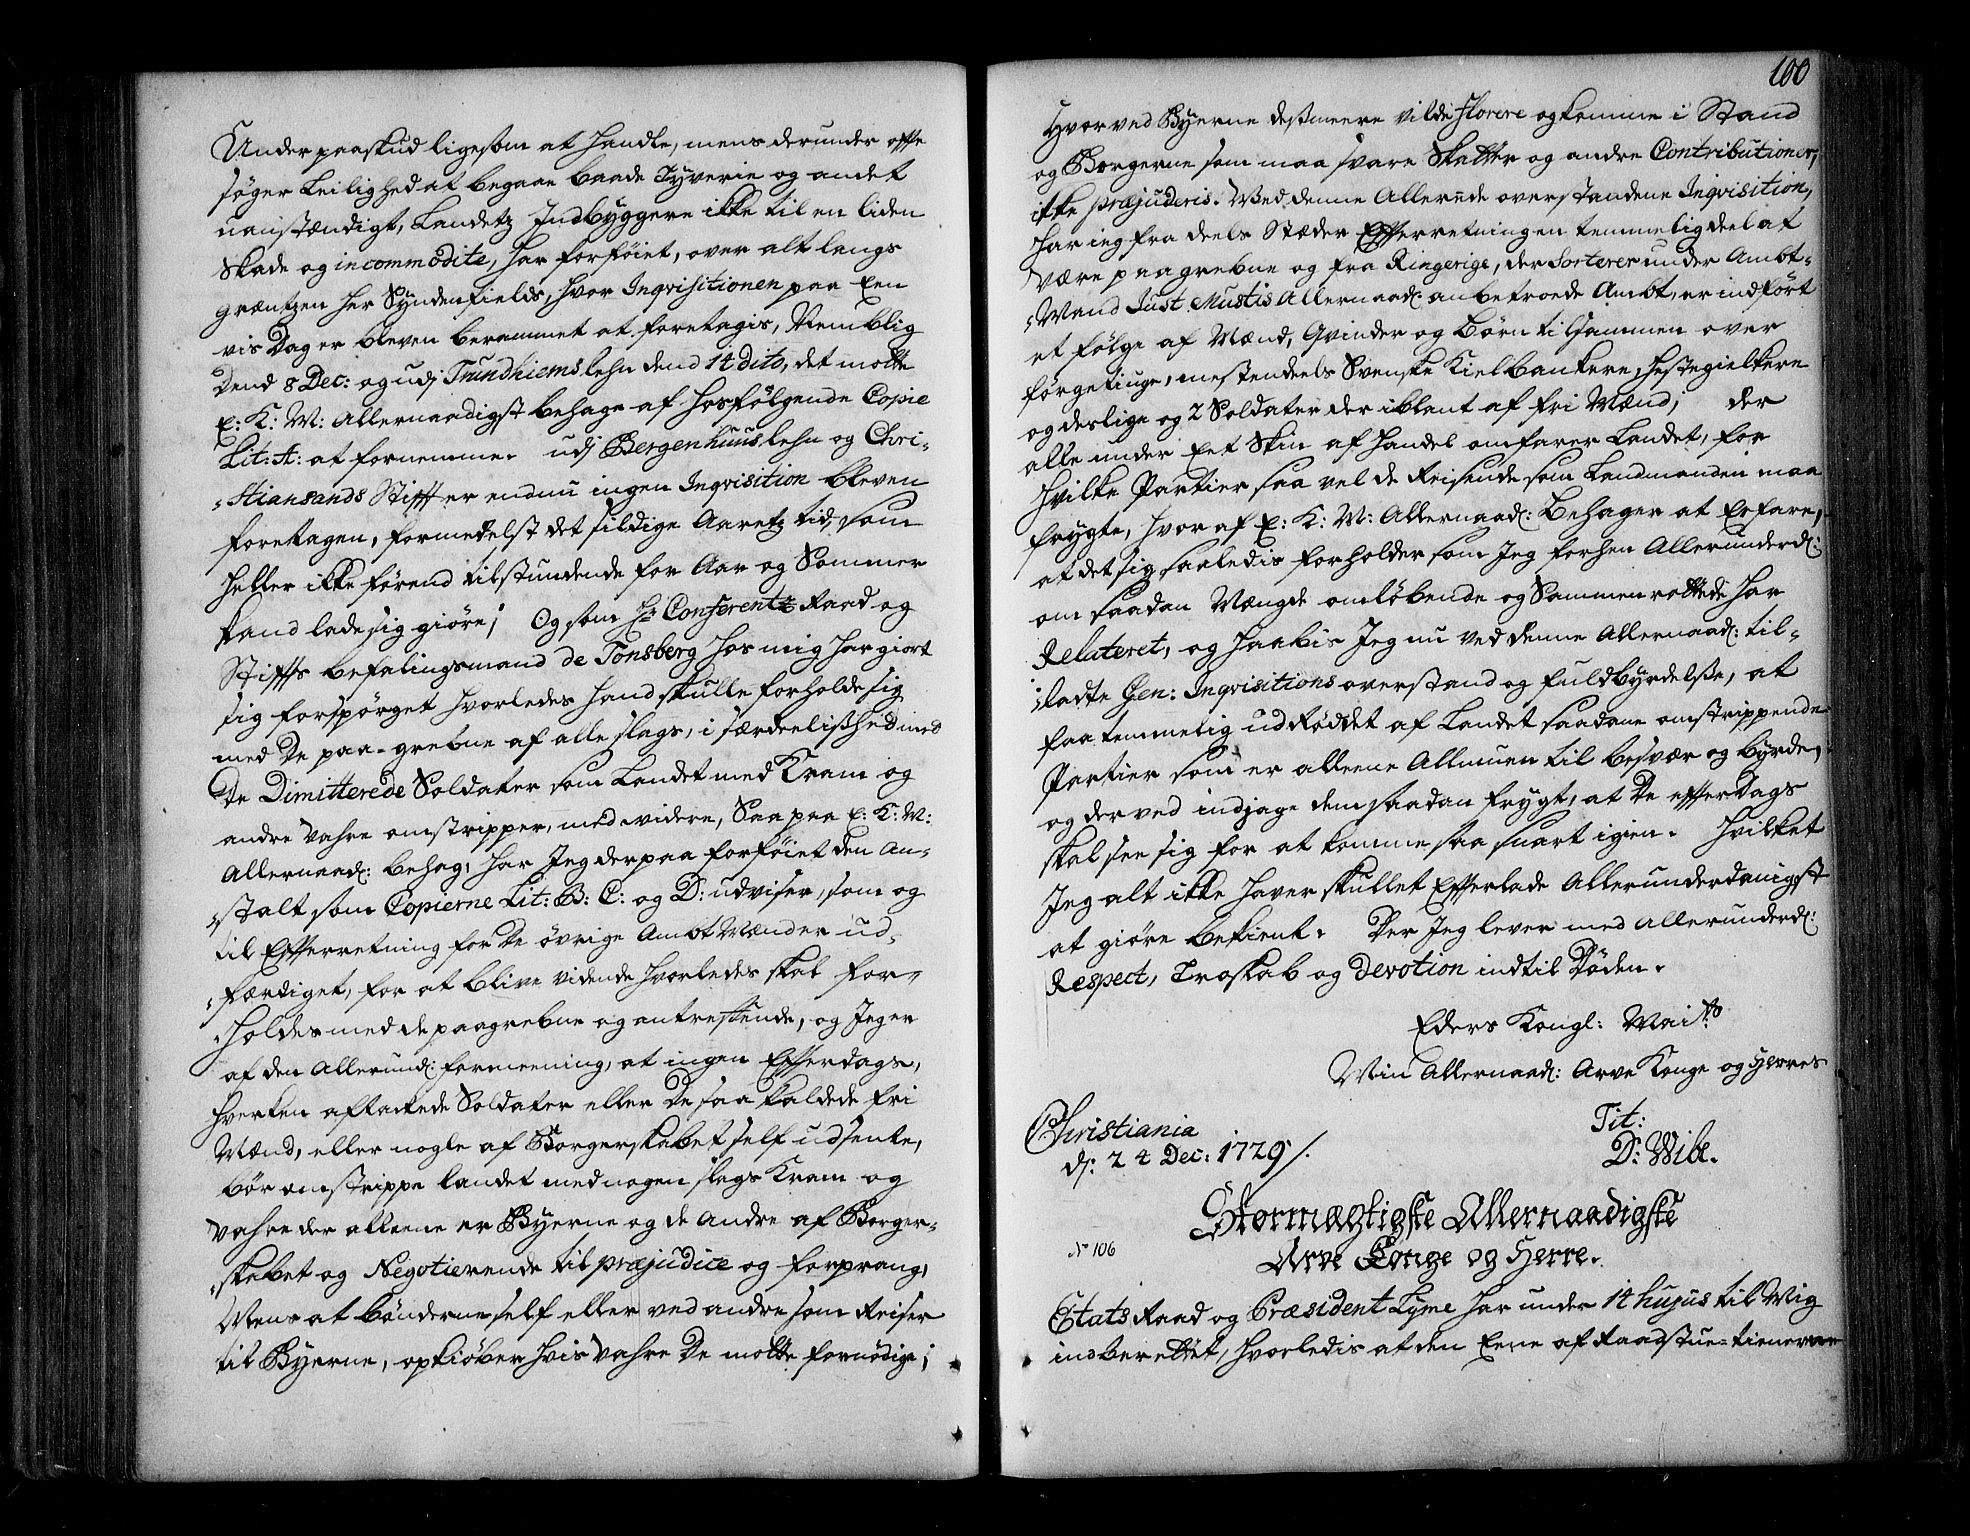 Under paaskud ligesom at handle, mens derunder ofte
søger Leilighed at begaae baade Tyverie og andet
uanstændigt, Landetz Indbyggere ikke til en liden
Skade og incommodite, har forføiet, over alt langs
græntzen her Syndenfields, hvor Inqvisitionen paa Een
vis Dag er bleven berammet at foretagis, Nemblig
Dend 8 Dec: og udj Trundhiems lehn dend 14 dito, det motte
E: K: M: Allernaadigst behage af hosfølgende Copie
Lit: A: at fornemme. udj Bergenhuus lehn og Chri-
stiansands Stifft er endnu ingen Inqvisition bleven
foretagen, formedelst det sildige Aaretz tid, som
heller ikke førend tilstundende for Aar og Sommer
kand lade sig giøre; Og som Hr Conferentz Raad og
Stiffts befalingsmand de Tonsberg hos mig har giort
sig forspørget hvorledes hand skulle forholde sig
med De paa-grebne af alle slags, i særdeelished med
De Dimitterede Soldater som Landet med Kram og
andre Vahre omstripper, med widere, Saa paa E: K: M:
Allernaad: behag, har Jeg derpaa forføiet den An-
stalt som Copierne Lit: B: C: og D: udviser, som og
til Efterretning for De øvrige Ambt Mænder ud-
færdiget, for at blive vidende hvorledes skal for-
holdes med de paagrebne og antreffende, og Jeg er
af den Allerund: formeening, at ingen Efterdags,
hverken aftackede Soldater eller De saa kaldede fri
Mænd, eller nogle af Borgerskabet self udsente,
bør omstrippe landet med nogen slags Kram og
Vahre der alleene er Byerne og de andre af Borger-
skabet og Negotierende til præjudice og forprang,
Mens at bønderne self eller ved andre som Reiser
til Byerne, opkiøber hvis Vahre De motte fornødige;
100
Hvorved Byerne destmeere vilde florere og komme i Stand
og Borgerne som maa svare Skatter og andre Contributioner,
ikke præjuderis. Wed denne Allerede overstandene Inqvisition,
har ieg fra deels Stæder Efterretning en temmelig deel at
være paagrebne og fra Ringerige, der Sorterer under Ambt-
Mand Just. Mustis Allernaad: anbetroede Ambt, er indført
et følge af Mænd, Qvinder og Børn tilsammen over
førgetiuge, mestendeels Svenske Kielbankere, hestegielkere
og deslige og 2 Soldater der iblant af fri Mænd; der
alle under Eet Skin af handel omfarer Landet, for
hvilke Partier saa vel de Reisende som Landmanden maa
frygte, hvoraf E: K: M: Allernaad: Behager at Erfare,
at det sig saaledis forholder som Jeg forhen Allerunderd:
om saadan Mængde omløbende og Sammenrottede har
Relateret, og haabis Jeg nu ved denne Allernaad: til-
ladte Gen: Inqvisitions overstand og fuldbyrdelsse, at
faa temmelig udRøddet af Landet saadane omstrippende
Partier som er alleene Allmuen til besvær og byrde,
og derved indjage dem saadan frygt, at De efterdags
skal see sig for at komme saa snart igien. Hvilket
Jeg alt ikke haver skullet Efterlade Allerunderdanigst
at giøre bekient. Der Jeg lever med Allerunderd:
Respect, Troskab og Devotion indtil Døden.
Eders Kongl: Maits
Min Allernaad: Arve Konge og Herres
Christiania
d: 24 Dec: 1729/.
Tit:
D: Wibe.
Stormægtigste Allernaadigste
Arve Konge og Herre.
No 106
Etats Raad og Præsident Lyme har under 14 hujus til Mig
indberettet, hvorledis at den Eene af Raadstue-tienerne